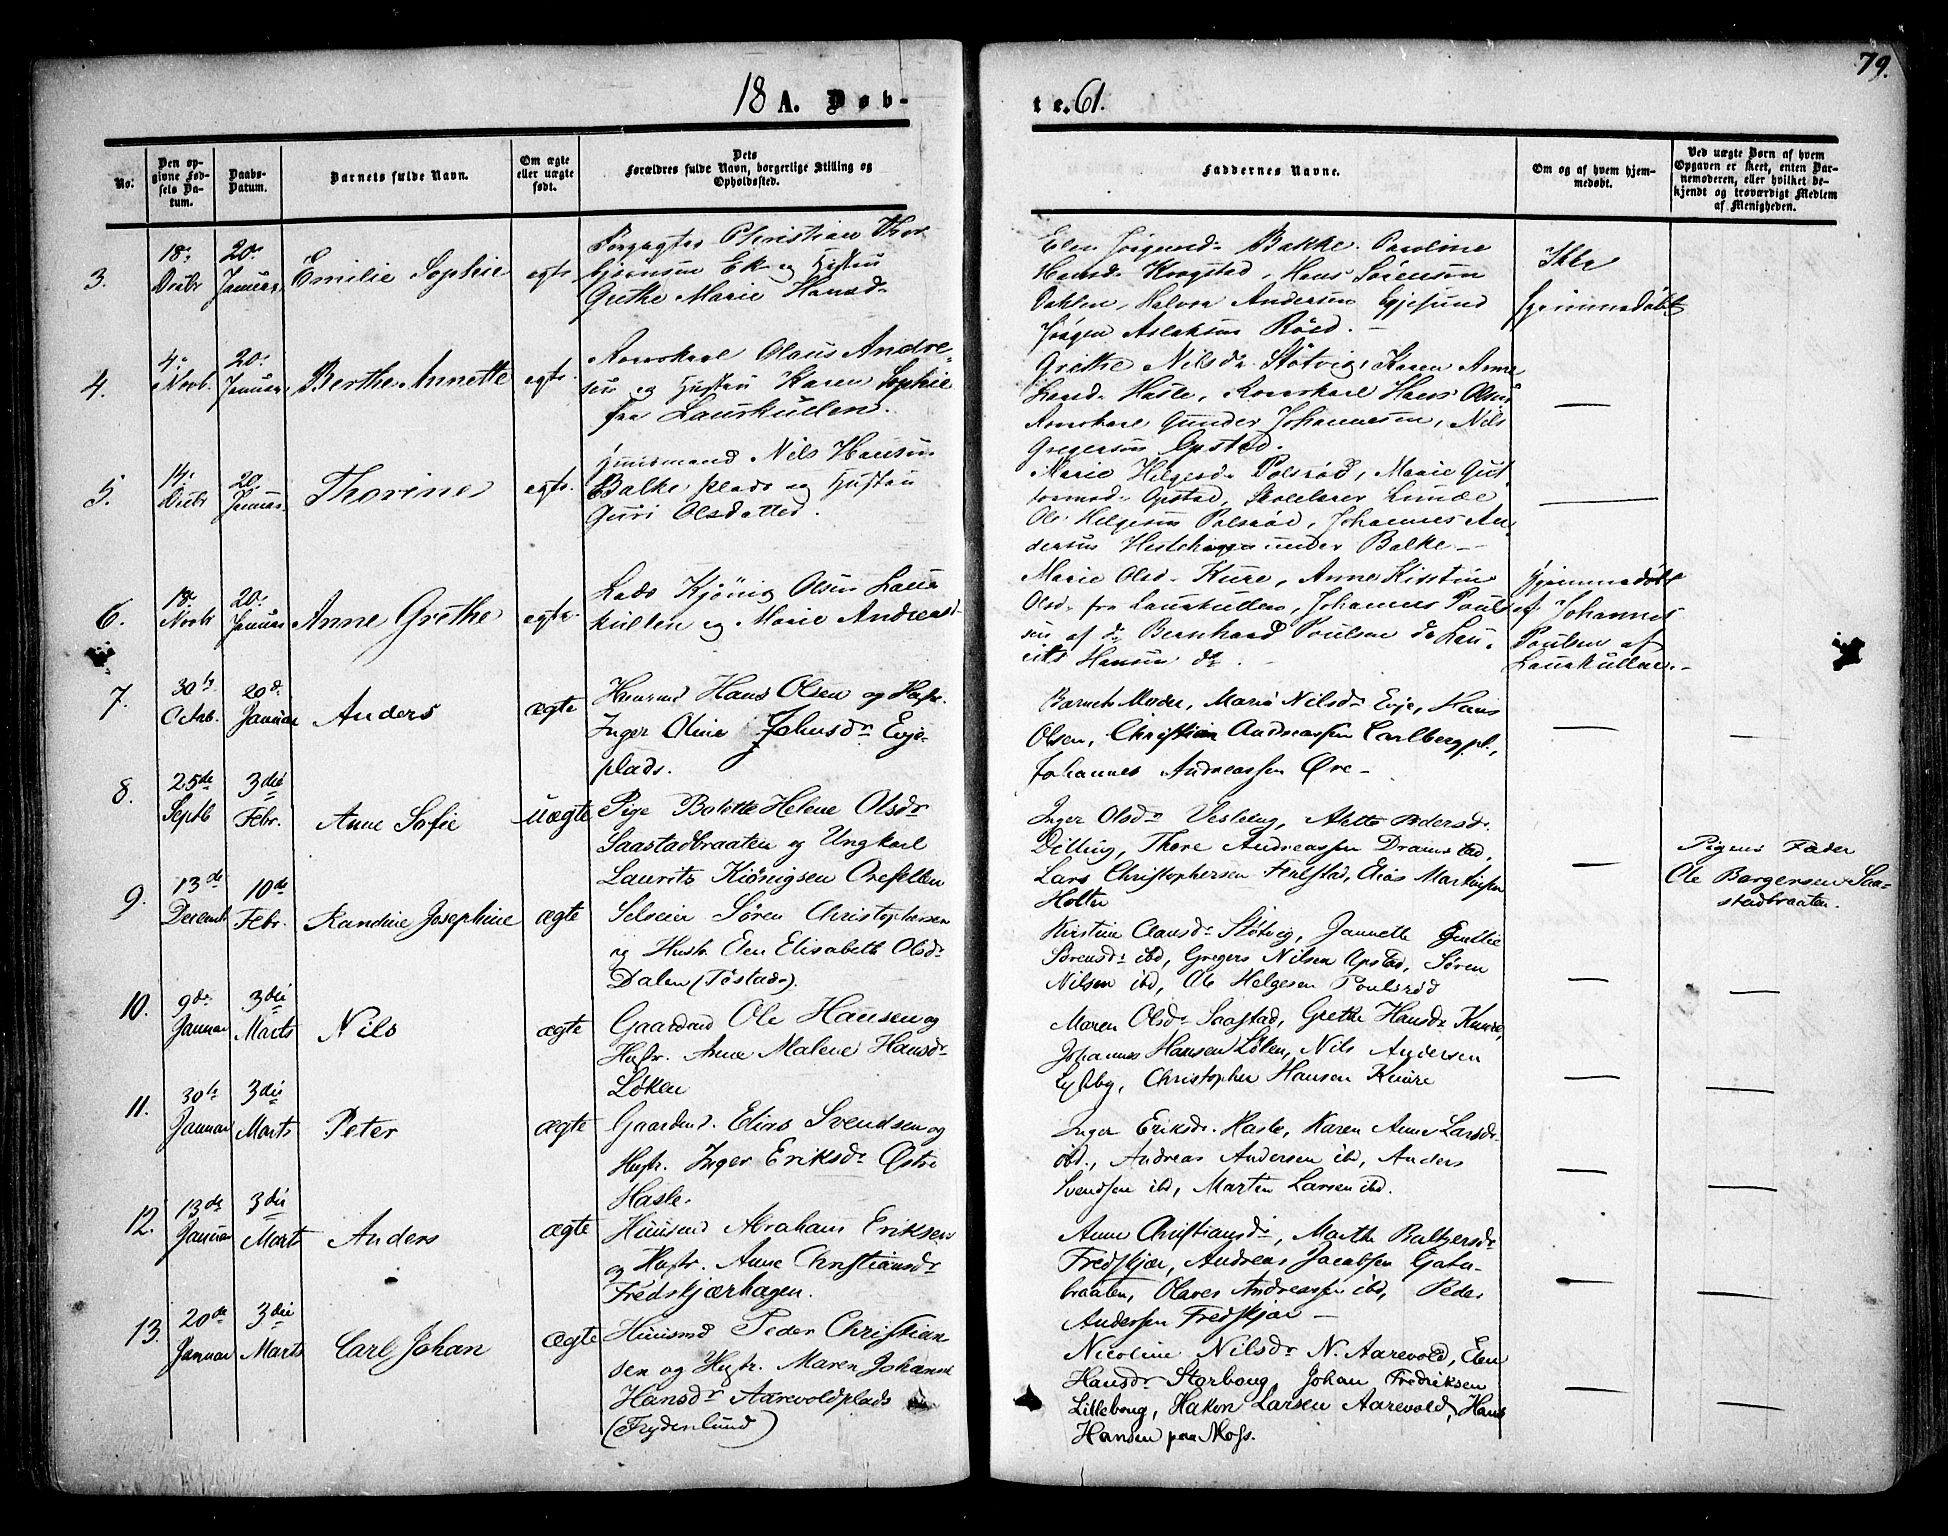 79.
18 A. Døb-
te. 61.
No.
Den op-
givne Fød-
sels Da-
tum.
Daabs-
Datum.
Barnets fulde Navn.
Om ægte
eller uægte
født.
Dets
Forældres fulde Navn, borgerlige Stilling og
Opholdssted.
Faddernes Navne.
Om og af hvem hjem-
medøbt.
Ved uægte Børn af hvem
Opgaven er skeet, enten Bar-
nemoderen, eller hvilket be-
kjendt og troværdigt Medlem
af Menigheden.
3.
18.
Decbr
20.
Januar
Emilie Sophie
egte
Forpagter Christian Thor
bjørnsen Ek og Hustru
Grethe Marie Hansd.
Elen Jørgensd. Bakke. Pauline
Hansd. Krogstad, Hans Sørensen
Dahlen, Halvor Andersen Egjesund
Jørgen Aslaksen Röed.
Ikke
hjemmedöbt
4.
4.
Novb.
20.
Januar
Berthe Annette
egte.
Romskarl Olaus Andre-
sen og Hustru Karen Sophie
fra Laurkullen.
Grethe Nilsd. Støtvig, Karen Anne
Larsd. Hasle, Romskarl Hans Olsen
Romskarl Gunder Johannesen, Nils
Gregersen Opstad.
5.
14.
Decbr
20.
Januar
Thorine
egte.
Huusmand Nils Hansen
Balke plads og Hustru
Guri Olsdatter.
Marie Helgesd. Polsrød, Marie Gut
tormsd. Opstad, Skolelærer Lunde
Ole Helgesen Polsrød, Johannes An
dersen Hestehagen under Balke
6.
18.
Novbr
20.
Januar
Anne Grethe
egte
Lods Kjönig Olsen Laur
kullen og Marie Andreasd
Marie Olsd. Kure, Anne Kirstine
Olsd. fra Laurkullen, Johannes Pouls
sen af do Bernhard Poulsen do Lau
rits Hansen do.
Hjemmedöbt
af Johannes
Poulsen af
Laurkullen.
7.
30te
Octob.
20d.
Januar
Anders
ægte
Huusmd Hans Olsen og Hustr.
Inger Oline Johnsdr. Evje-
plads.
Barnets Moder, Maria Nilsdr. Evje, Hans
Olsen, Christian Andreassen Carlbergpl.,
Johannes Andreassen Øre
8.
25de
Septb
3die
Febr.
Anne Sofie
uægte
Pige Bolette Helene Olsdr
Saastadbraaten og Ungkarl
Laurits Kiönigsen Orefellen
Inger Olsdr. Vesteng, Alette Pedersdr.
Dilling, Thore Andreassen Dramstad,
Lars Christophersen Ferlstad, Elias Martinsen
Holten
Pigens Fader
Ole Borgersen Saa-
stadbraaten.
9.
13de
Decemb
10de
Febr.
Randine Josephine
ægte
Selveier Søren Christophersen
og Hustr. Elen Elisabeth Olsdr.
Dalen (Tøstad).
Kirstine Clausdr. Støtvig, Jannette Emilie
Sørensdr. ibd, Gregers Nilsen Opstad, Søren
Nilsen ibd, Ole Helgesen Poulsrød
10.
9de
Januar
3die
Marts
Nils
ægte
Gaardmd Ole Hansen og
Hustr. Anne Malene Hansdr.
Løken
Maren Olsdr. Saastad, Grethe Hansdr. Kuure,
Johannes Hansen Løken, Nils Andersen
Eskeby, Christopher Hansen Kuure
11.
30te
Januar
3die
Marts
Peter
ægte
Gaardmd. Elias Svendsen og
Hustr. Inger Eriksdr. Østre
Hasle.
Inger Eriksdr. Hasle, Karen Anne Larsdr.
ibd., Andreas Andersen ibd, Anders
Svendsen ibd, Marten Larsen ibd.
12.
13de
Januar
3die
Marts
Anders
ægte
Huusmd Abraham Eriksen
og Hustr. Anne Christiansdr
Fredskjærhagen.
Anne Christiansdr., Marthe Baltzersdr.
Fredskjær, Andreas Jacobsen Gatu-
braaten, Olaves Andreassen ibd, Peder
Andersen Fredskjær
13.
20de
Januar
3die
Marts
Carl Johan
ægte
Huusmd Peder Christian
sen og Hustr. Maren Johanne
Hansdr. Aarevoldplads
(Frydenlund)
Nicoline Nilsdr. N. Aarevold, Elen
Hansdr. Storboug, Johan Fredriksen
Lilleboug, Hakon Larsen Aarevold, Hans
Hansen paa Moss.